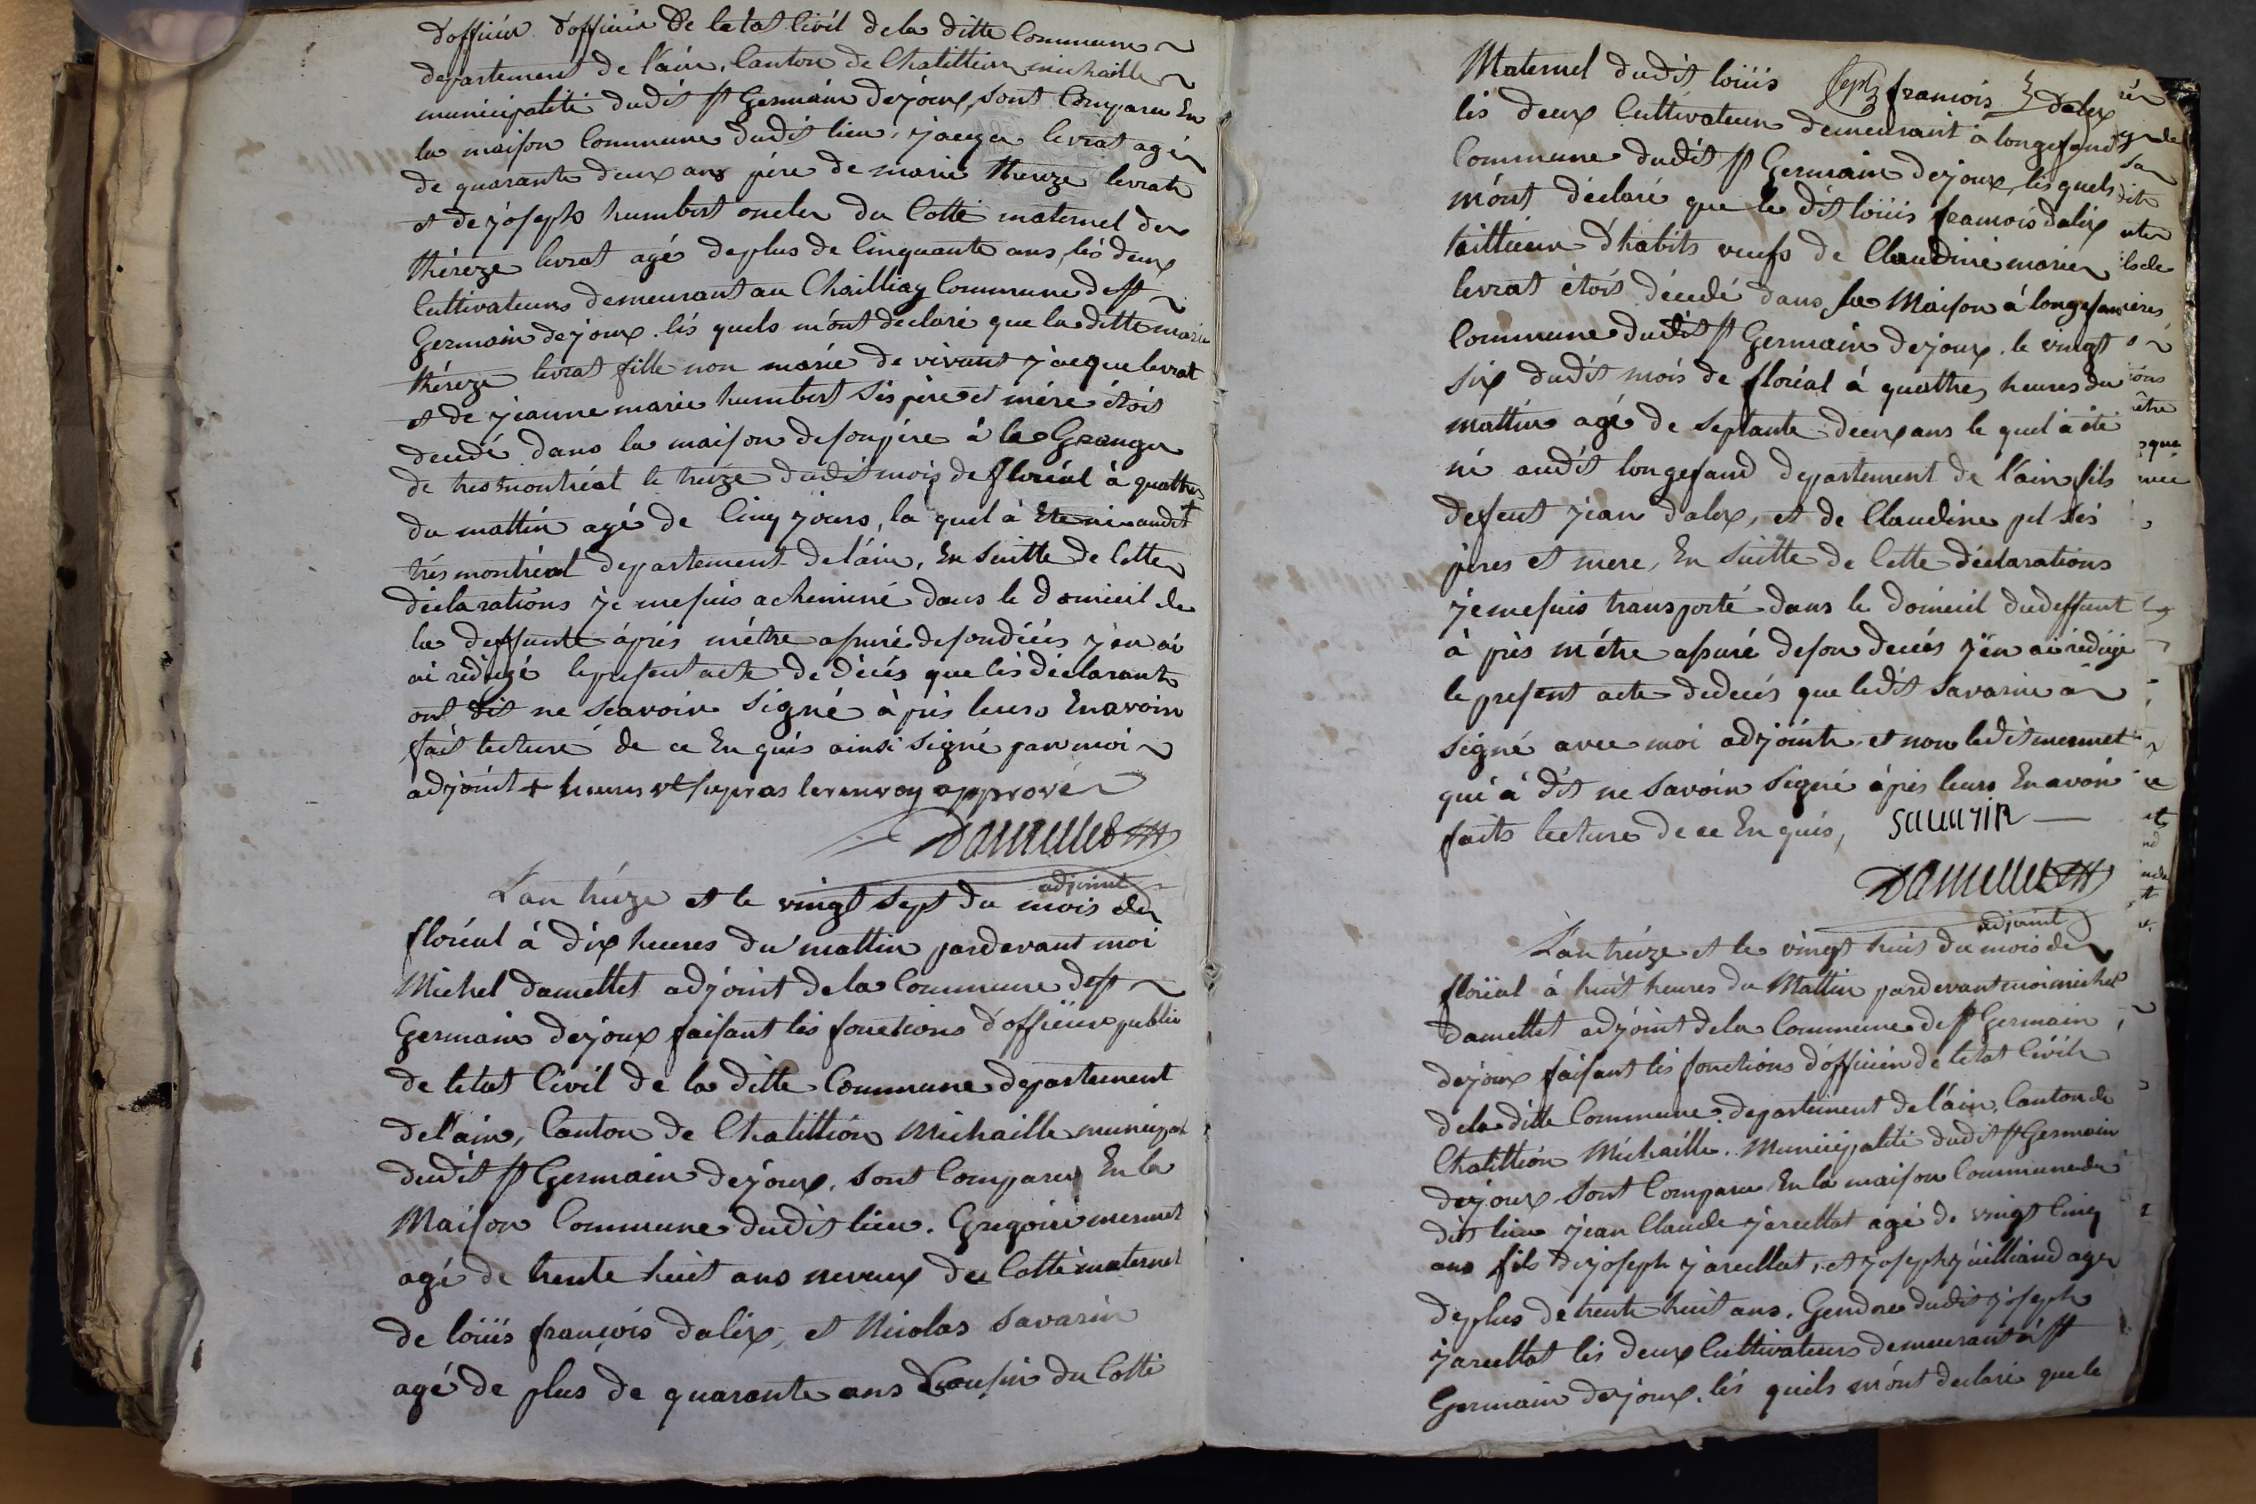 d'officier d'officier de letat Civil de la ditte Commune
departement de l'ain, Canton de Chatillion michaille
municipalité dudit st Germain dejoux, sont Comparu En
la maison Commune dudit lieu, jacque livrat agé
de quarante deux ans père de marie thereze livrat
et de joseph humbert oncle du Cotté maternel de
théreze livrat agé de plus de Cinquante ans, lés deux
Cultivateurs demeurant au Chailliay Commune de st
Germain dejoux. lés quels m'ont declaré que la ditte marie
théreze livrat fille non mariée de vivant jacque livrat
et de jeanne marie humbert sés père et mére étoit
decedé dans la maison de son père à la Grange
de tres montréal le treize dudit mois de floréal à quatther
du mattin agé de Cinq jours, la quel à Eté né audit
trés montréal departement de l'ain, En suitte de Cette
déclarations je me suis acheminé dans le domicil de
la deffunte áprés métre assuré de son décés j'en ai
ai rédigé le présent acte de décés que lés déclarant
ont dit ne scavoir signé à prés leurs En avoir
fait lecture de ce En quis ainsi signé par moi
adjoint + heures vt supras le renvoy apprové
Damellet
adjoint
L'an treize et le vingt sept du mois de
floréal à dix heures du mattin pardevant moi
Michel damellet adjoint de la Commune de st
Germain dejoux faisant lés fonctions d'officier public
de letat Civil de la ditte Commune departement
de l'ain, Canton de Chatillion Michaille municipal
dudit st Germain dejoux. sont Comparu En la
Maison Commune dudit lieu. Gregoire mermet
agé de trente huit ans neveux du Cotté maternel
de loüis françois dalix, et Nicolas Savarin
agé de plus de quarante ans Cousin du Cotté
Maternel dudit loüis françois dalix
lés deux Cultivateurs demeurant à longefand
Commune dudit st Germain dejoux, lés quels
m'ont déclaré que le dit loüis francois dalix
taillieur d'habits veufs de Claudine marie
livrat étoit décédé dans sa Maison à longefan
Commune dudit st Germain dejoux. le vingt
six dudit mois de floréal à quatthes heures du
mattin agé de septante deux ans le quel à été
né audit longefand departement de l'ain fils
defeut jean dalix, et de Claudine pl sés
péres et mere, En suitte de Cette déclarations
je me suis transporté dans le domicil du deffunt
à prés métre assuré de son decés j'en ai rédigé
le present acte de decés que ledit Savarin a
signé avec moi adjoint et non ledit mermet
qui à dit ne savoir signé àprés leurs En avoir
faits lecture de ce En quis, savarin
Damellet
adjoint
L'an treize et le vingt huit du mois de
floréal à huit heures du Mattin pardevant moi michel
damellet adjoint de la Commune de st Germain
dejoux faisant lés fonctions d'officier de letat Civil
de la ditte Commune departement de l'ain, Canton de
Chatillion Michaille. Municipalité dudit st Germain
dejoux sont Comparu En la maison Commune du
dit lieu jean Claude jarcellat agé de vingt Cinq
ans fils de joseph jarcellat, et joseph juilliand agé
de plus de trente huit ans. Gendre dudit joseph
jarcellat lés deux Cultivateurs demeurant à st
Germain dejoux. lés quels m'ont declaré que le